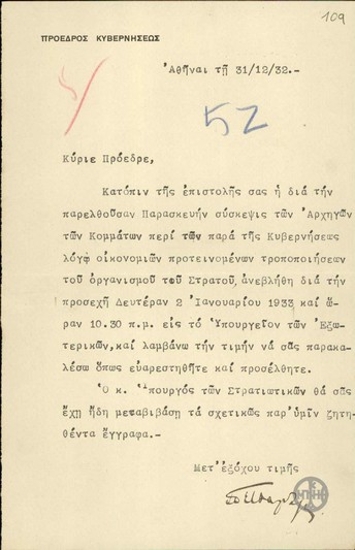 109
ΠΡΟΕΔΡΟΣ ΚΥΒΕΡΝΗΣΕΩΣ
Ἀθῆναι τῇ 31/12/32.-
52
Κύριε Πρόεδρε,
Κατόπιν τῆς ἐπιστολῆς σας ἡ διά τήν
παρελθοῦσαν Παρασκευήν σύσκεψις τῶν Ἀρχηγῶν
τῶν Κομμάτων περί τῶν παρά τῆς Κυβερνήσεως
λόγῳ οἰκονομιῶν προτεινομένων τροποποιήσεων
τοῦ ὀργανισμοῦ τοῦ Στρατοῦ, ἀνεβλήθη διά τήν
προσεχῆ Δευτέραν 2 Ἰανουαρίου 1933 καί ὥ-
ραν 10.30 π.μ. εἰς τό Ὑπουργεῖον τῶν Ἐξω-
τερικῶν, καί λαμβάνω τήν τιμήν νά σᾶς παρακα-
λέσω ὅπως εὐαρεστηθῆτε καί προσέλθητε.
Ὁ κ. Ὑπουργός τῶν Στρατιωτικῶν θά σᾶς
ἔχῃ ἤδη μεταβιβάσῃ τά σχετικῶς παρ'ὑμῖν ζητη-
θέντα ἔγγραφα.-
Μετ'ἐξόχου τιμῆς